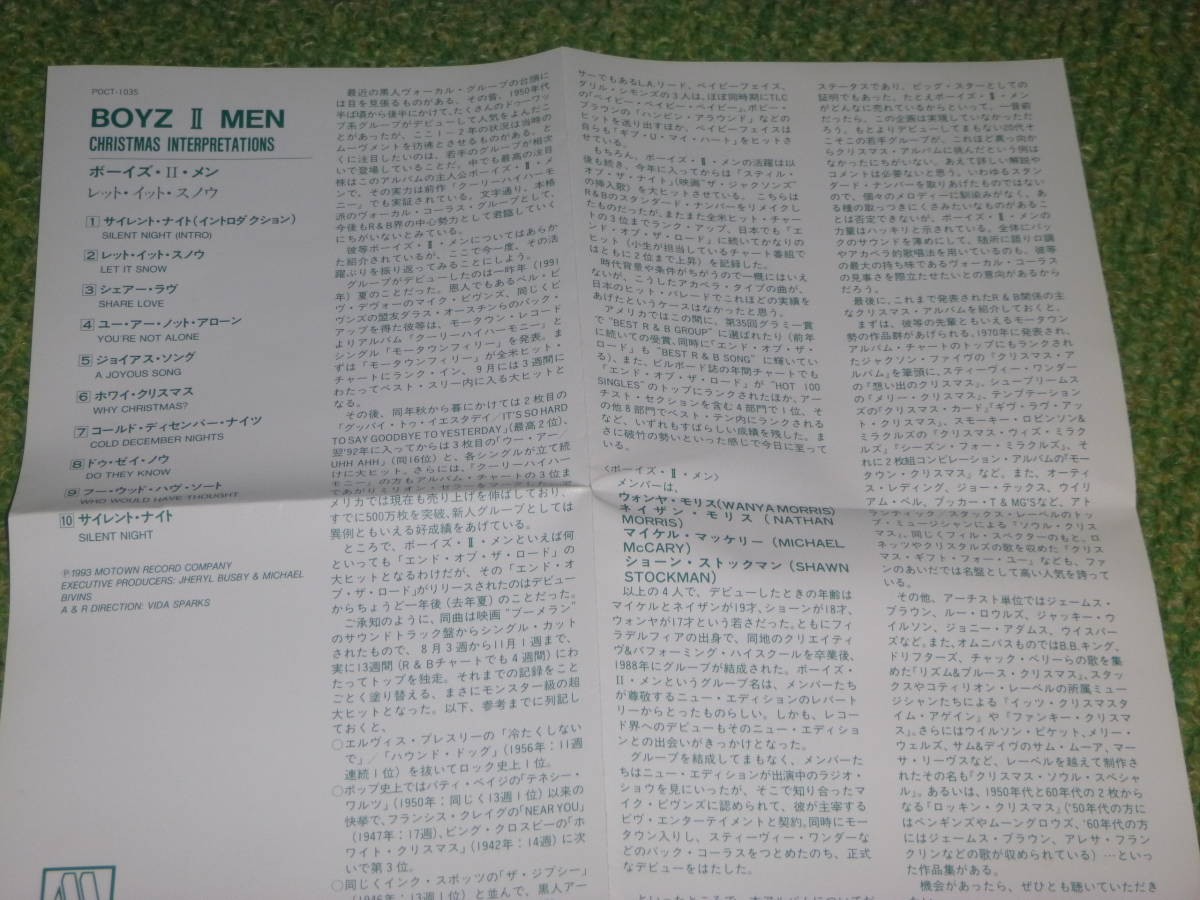 POCT-1035
BOYZ Ⅱ MEN
CHRISTMAS INTERPRETATIONS
ボーイズ・Ⅱ・メン
レット・イット・スノウ
1 サイレント・ナイト(イントロダクション)
SILENT NIGHT (INTRO)
2 レット・イット・スノウ
LET IT SNOW
3 シェアー・ラヴ
SHARE LOVE
4 ユー・アー・ノット・アローン
YOU'RE NOT ALONE
5 ジョイアス・ソング
A JOYOUS SONG
6 ホワイ・クリスマス
WHY CHRISTMAS?
7 コールド・ディセンバー・ナイツ
COLD DECEMBER NIGHTS
8 ドゥ・ゼイ・ノウ
DO THEY KNOW
9 フー・ウッド・ハヴ・ソート
WHO WOULD HAVE THOUGHT
10 サイレント・ナイト
SILENT NIGHT
℗1993 MOTOWN RECORD COMPANY
EXECUTIVE PRODUCERS: JHERYL BUSBY & MICHAEL
BIVINS
A & R DIRECTION: VIDA SPARKS
最近の黒人ヴォーカル・グループの台頭に
は目を見張るものがある。その昔、1950年代
半ば頃から後半にかけて、たくさんのドゥーワッ
プ系グループがデビューして人気をよんだこ
とがあったが、ここ1〜2年の状況は当時の
ムーヴメントを彷彿とさせるものがある。と
くに注目したいのは、若手のグループが相次
いで登場していることだ。中でも最高の注目
株はこのアルバムの主人公ボーイズ・Ⅱ・メ
ンで、その実力は前作「クーリーハイハーモ
ニー」でも実証されている。文字通り、本格
派のヴォーカル・コーラス・グループとして
今後もR&B界の中心勢力として君臨していく
にちがいないとみている。
彼等ボーイズ・Ⅱ・メンについてはあらか
た紹介されているが、ここで今一度、その活
躍ぶりを振り返ってみることにしよう。
グループがデビューしたのは一昨年(1991
年)夏のことだった。恩人でもあるベル・ビ
ヴ・デヴォーのマイク・ビヴンズ、同じくビ
ヴンズの盟友グラス・オースチンらのバック・
アップを得た彼等は、モータウン・レコード
よりアルバム「クーリーハイハーモニー」と
シングル「モータウンフィリー」を発表。ま
ずは「モータウンフィリー」が全米ヒット・
チャートにランク・イン、9月には3週間に
わたってベスト・スリー内に入る大ヒットと
なる。
その後、同年秋から暮にかけては2枚目の
「グッバイ・トゥ・イエスタデイ/IT'S SO HARD
TO SAY GOODBYE TO YESTERDAY」(最高2位)、
翌'92年に入ってからは3枚目の「ウー・アー/
UHH AHH」(同16位)と、各シングルが立て続
けに大ヒット。さらには、「クーリーハイハー
モニー」の方もアルバム・チャートの3位ま
メリカでは現在も売り上げを伸ばしており、
すでに500万枚を突破、新人グループとしては
異例ともいえる好成績をあげている。
ところで、ボーイズ・Ⅱ・メンといえば何
といっても「エンド・オブ・ザ・ロード」の
大ヒットとなるわけだが、その「エンド・オ
ブ・ザ・ロード」がリリースされたのはデビュー
からちょうど一年後(去年夏)のことだった。
ご承知のように、同曲は映画“ブーメラン”
のサウンドトラック盤からシングル・カット
されたもので、8月3週から11月1週まで、
実に13週間(R&Bチャートでも4週間)にわ
たってトップを独走。それまでの記録をこと
ごとく塗り替える、まさにモンスター級の超
大ヒットとなった。以下、参考までに列記し
ておくと、
○エルヴィス・プレスリーの「冷たくしない
で」/「ハウンド・ドッグ」(1956年:11週
連続1位)を抜いてロック史上1位。
○ポップ史上ではパティ・ペイジの「テネシー・
ワルツ」(1950年:同じく13週1位)以来の
快挙で、フランシス・クレイグの「NEAR YOU」
(1947年:17週)、ビング・クロスビーの「ホ
ワイト・クリスマス」(1942年:14週)に次
いで第3位。
○同じくインク・スポッツの「ザ・ジプシー」
(1946年:13週1位)と並んで、黒人アー
サーでもあるL.A.リード、ベイビーフェイス、
ダリル・シモンズの3人は、ほぼ同時期にTLC
の「ベイビー・ベイビー・ベイビー」、ボビー・
ブラウンの「ハンピン・アラウンド」などの
ヒットを送り出すほか、ベイビーフェイスは
自らも「ギブ・U・マイ・ハート」をヒットさ
せている。
もちろん、ボーイズ・Ⅱ・メンの活躍は以
後も続き、今年に入ってからは「スティル・
オブ・ザ・ナイト」(映画“ザ・ジャクソンズ”
の挿入歌)を大ヒットさせている。こちらは
R&Bのスタンダード・ナンバーをリメイクし
たものだったが、またまた全米ヒット・チャー
トの3位までランク・アップ、日本でも「エ
ンド・オブ・ザ・ロード」に続いてかなりの
ヒット(小生が担当しているチャート番組で
はともに2位まで上昇)を記録した。
時代背景や条件がちがうので一概にはいえ
ないが、こうしたアカペラ・タイプの曲が、
日本のヒット・パレードでこれほどの実績を
あげたというケースはなかったと思う。
アメリカではこの間に、第35回グラミー賞
で“BEST R & B GROUP”に選ばれたり(前年
に続いての受賞、同時に「エンド・オブ・ザ・
ロード」も“BEST R & B SONG”に輝いてい
る)、また、ビルボード誌の年間チャートでも
「エンド・オブ・ザ・ロード」が“HOT 100
SINGLES”のトップにランクされたほか、アー
チスト・セクションを含む4部門で1位、そ
の他8部門でベスト・テン内にランクされる
など、いずれもすばらしい成績を残した。ま
さに破竹の勢いといった感じで今日に至って
いる。
〈ボーイズ・Ⅱ・メン〉
メンバーは、
ウォンヤ・モリス(WANYA MORRIS)
ネイザン・モリス(NATHAN
MORRIS)
マイケル・マッケリー(MICHAEL
McCARY)
ショーン・ストックマン(SHAWN
STOCKMAN)
以上の4人で、デビューしたときの年齢は
マイケルとネイザンが19才、ショーンが18才、
ウォンヤが17才という若さだった。ともにフィ
ラデルフィアの出身で、同地のクリエイティ
ヴ&パフォーミング・ハイスクールを卒業後、
1988年にグループが結成された。ボーイズ・
Ⅱ・メンというグループ名は、メンバーたち
が尊敬するニュー・エディションのレパート
リーからとったものらしい。しかも、レコー
ド界へのデビューもそのニュー・エディショ
ンとの出会いがきっかけとなった。
グループを結成してまもなく、メンバーた
ちはニュー・エディションが出演中のラジオ・
ショウを見にいったが、そこで知り合ったマ
イク・ビヴンズに認められて、彼が主宰する
ビヴ・エンターテイメントと契約。同時にモー
タウン入りし、スティーヴィー・ワンダーな
どのバック・コーラスをつとめたのち、正式
なデビューをはたした。
といったところで、本アルバムについてだ
ステータスであり、ビッグ・スターとしての
証明でもあった。たとえボーイズ・Ⅱ・メン
がどんなに売れているからといって、一昔前
だったら、この企画は実現していなかっただ
ろう。もとよりデビューしてまもない20代そ
こそこの若手グループが、これほど真っ向か
らクリスマス・アルバムに挑んだという例は
なかったにちがいない。あえて詳しい解説や
コメントは必要ないと思う。いわゆるスタン
ダード・ナンバーを取りあげたものではない
ので、個々のメロディーに馴染みがなく、あ
る種の取っつきにくさみたいなものがあるこ
とは否定できないが、ボーイズ・Ⅱ・メンの
力量はハッキリと示されている。全体にバッ
クのサウンドを薄めにして、随所に語り口調
やアカペラ的歌唱法を用いているのも、彼等
の最大の持ち味であるヴォーカル・コーラス
の見事さを際立たせたいとの意向があるから
だろう。
最後に、これまで発表されたR&B関係の主
なクリスマス・アルバムを紹介しておくと、
まずは、彼等の先輩ともいえるモータウン
勢の作品群があげられる。1970年に発表され、
アルバム・チャートのトップにもランクされ
たジャクソン・ファイヴの『クリスマス・ア
ルバム』を筆頭に、スティーヴィー・ワンダー
の『想い出のクリスマス』、シュープリームス
の『メリー・クリスマス』、テンプテーション
ズの『クリスマス・カード』『ギヴ・ラヴ・アッ
ト・クリスマス』、スモーキー・ロビンソン&
ミラクルズの『クリスマス・ウィズ・ミラク
ルズ』『シーズン・フォー・ミラクルズ』、そ
れに2枚組コンピレーション・アルバムの『モー
タウン・クリスマス』など。また、オーティ
ス・レディング、ジョー・テックス、ウイリ
アム・ベル、ブッカー・T & MG'Sなど、アト
ランティック/スタックス・レーベルのトッ
プ・ミュージシャンによる『ソウル・クリス
マス』、同じくフィル・スペクターのもと、ロ
ネッツやクリスタルズの歌を収めた『クリス
マス・ギフト・フォー・ユー』なども、ファ
ンのあいだでは名盤として高い人気を誇って
いる。
その他、アーチスト単位ではジェームス・
ブラウン、ルー・ロウルズ、ジャッキー・ウ
イルソン、ジョニー・アダムス、ウイスパー
ズなど。また、オムニバスものではB.B.キング、
ドリフターズ、チャック・ベリーらの歌を集
めた『リズム&ブルース・クリスマス』、スタッ
クスやコティリオン・レーベルの所属ミュー
ジシャンたちによる『イッツ・クリスマスタ
イム・アゲイン』や『ファンキー・クリスマ
ス』。さらにはウイルソン・ピケット、メリー・
ウェルズ、サム&デイヴのサム・ムーア、マー
サ・リーヴスなど、レーベルを越えて制作さ
れたその名も『クリスマス・ソウル・スペシャ
ル』。あるいは、1950年代と60年代の2枚から
なる『ロッキン・クリスマス』('50年代の方に
はペンギンズやムーングロウズ、'60年代の方
にはジェームス・ブラウン、アレサ・フラン
クリンなどの歌が収められている)…といっ
た作品集がある。
機会があったら、ぜひとも聴いていただき